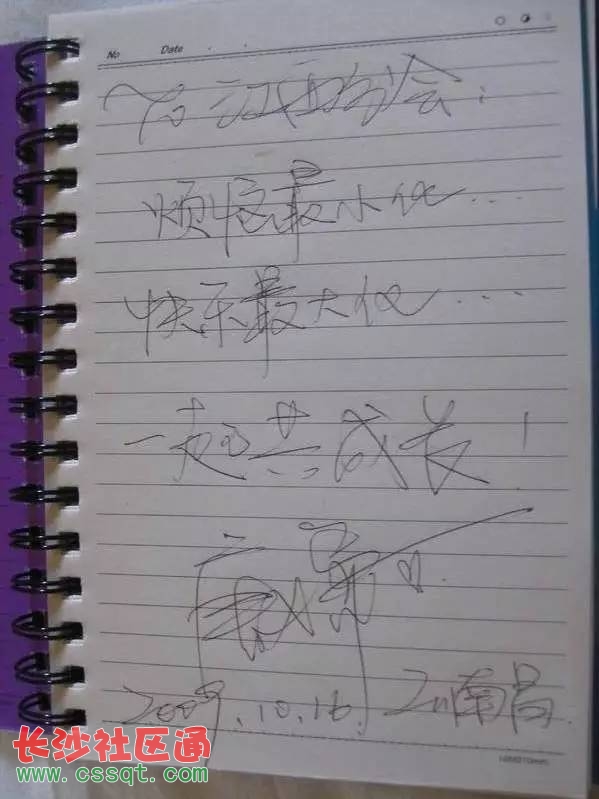 No Date . .
To 江西分会：
烦恼最小化...
快乐最大化...
一起共成长！
2009.10.16. 于南昌
长沙社区通
www.cssqt.com